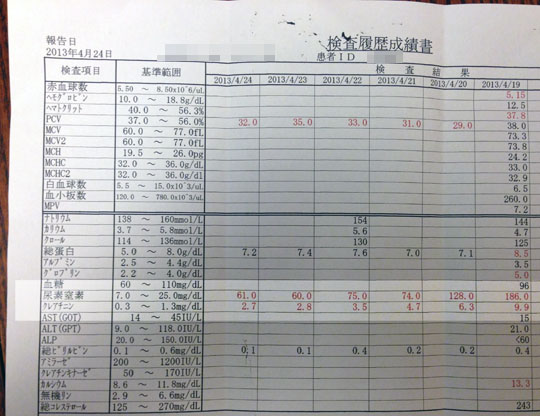 報告日
2013年4月24日
検査履歴成績書
患者ID
検査項目 基準範囲 検査結果
2013/4/24 2013/4/23 2013/4/22 2013/4/21 2013/4/20 2013/4/19
赤血球数 5.50 ～ 8.50x10^6/uL 5.15
ヘモグロビン 10.0 ～ 18.8g/dL 12.5
ヘマトクリット 40.0 ～ 56.3% 37.8
PCV 37.0 ～ 56.0% 32.0 35.0 33.0 31.0 29.0 38.0
MCV 60.0 ～ 77.0fL 73.3
MCV2 60.0 ～ 77.0fL 73.8
MCH 19.5 ～ 26.0pg 24.2
MCHC 32.0 ～ 36.0g/dL 33.0
MCHC2 32.0 ～ 36.0g/dl 32.9
白血球数 5.5 ～ 15.0x10^3/uL 6.5
血小板数 120.0 ～ 780.0x10^3/uL 260.0
MPV 7.2
ナトリウム 138 ～ 160mmol/L 154 144
カリウム 3.7 ～ 5.8mmol/L 5.6 4.7
クロール 114 ～ 136mmol/L 130 125
総蛋白 5.0 ～ 8.0g/dL 7.2 7.4 7.6 7.0 7.1 8.5
アルブミン 2.5 ～ 4.4g/dL 3.5
グロブリン 2.2 ～ 4.0g/dL 5.0
血糖 60 ～ 110mg/dL 96
尿素窒素 7.0 ～ 25.0mg/dL 61.0 60.0 75.0 74.0 128.0 186.0
クレアチニン 0.3 ～ 1.3mg/dL 2.7 2.8 3.5 4.7 6.3 9.9
AST(GOT) 14 ～ 45IU/L 15
ALT(GPT) 9.0 ～ 118.0IU/L 21.0
ALP 20.0 ～ 150.0IU/L <60
総ビリルビン 0.1 ～ 0.6mg/dL 0.1 0.1 0.4 0.2 0.2 0.4
アミラーゼ 200 ～ 1200IU/L
クレアチンキナーゼ 50 ～ 170IU/L
カルシウム 8.6 ～ 11.8mg/dL 13.3
無機リン 2.9 ～ 6.6mg/dL
総コレステロール 125 ～ 270mg/dL 243